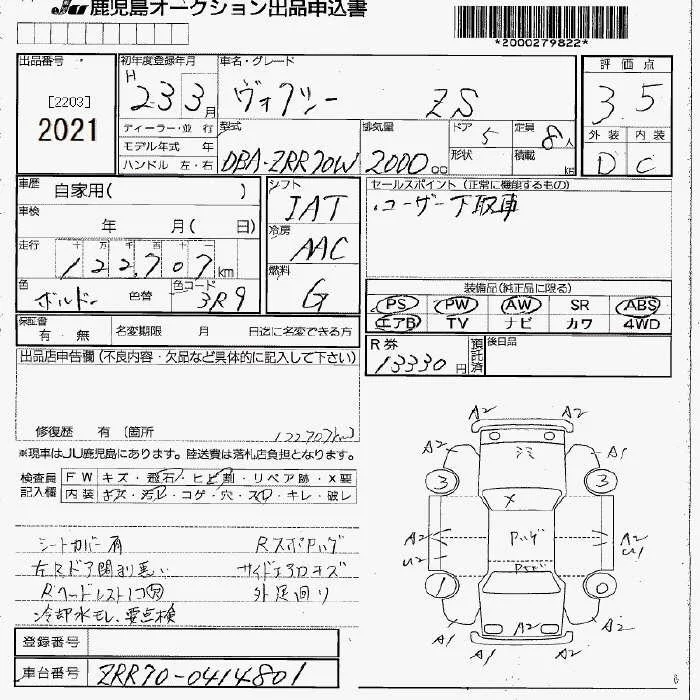 JU 鹿児島オークション出品申込書
*2000279822*
出品番号
[2203]
2021
初年度登録年月
H 23 3月
ディーラー・並 行
モデル年式 年
ハンドル 左・右
車名・グレード
ヴォクシー ZS
型式
DBA-ZRR70W
排気量
2000 cc
ドア 5
形状
定員 8人
積載 kg
評 価 点
3.5
外 装 内 装
D C
車歴
自家用( )
車検
年 月( 日)
走行 十 万 千 百 十 一
122,707 km
色 ボルドー 色替 色コード 3R9
シフト
IAT
冷房
AAC
燃料
G
セールスポイント (正常に機能するもの)
・ユーザー下取車
装備品(純正品に限る)
PS PW AW SR ABS
エアB TV ナビ カワ 4WD
保証書
有・無 名変期限 月 日迄に名変できる方
R 券
13330円
預託済
後日品
出品店申告欄 (不良内容・欠品など具体的に記入して下さい)
修復歴 有 (箇所
122707km)
※現車はJU鹿児島にあります。陸送費は落札店負担となります。
検査員記入欄
FW キズ・飛石・ヒビ割・リペア跡・X要
内装 キズ・汚レ・コゲ・穴・スレ・キレ・破レ
シートカバー有 Rスポハゲ
左Rドア閉り悪い サイドエアロキズ
Rヘッドレスト1コ欠 外足回り
冷却水モレ、要点検
登録番号
車台番号 ZRR70-0414801
A2 A2
A2 ミミ A1
3 3
X
A2 ハゲ A2
U2 U1
1 0
A1 A2 A2
A1 A2